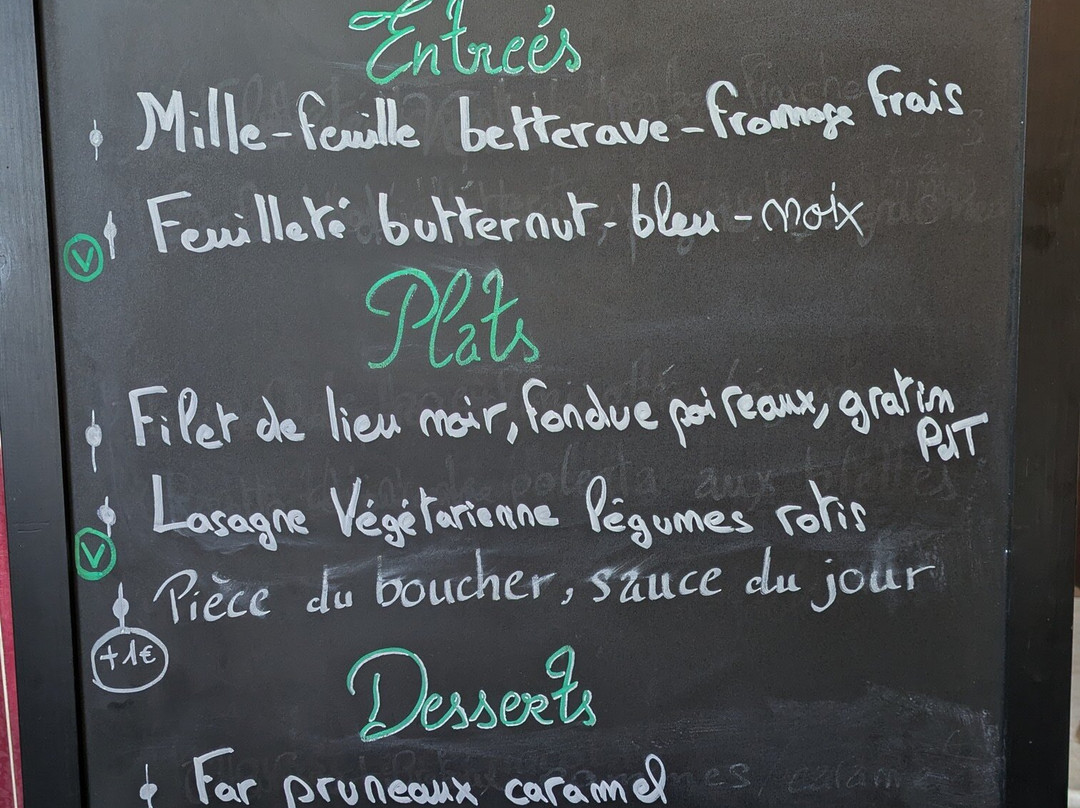 Entrées
Mille-feuille betterave-fromage frais
Feuilleté butternut-bleu-noix
V
Plats
Filet de lieu noir, fondue poireaux, gratin
PdT
Lasagne Végétarienne légumes rotis
V
Pièce du boucher, sauce du jour
+1€
Desserts
Far pruneaux caramel